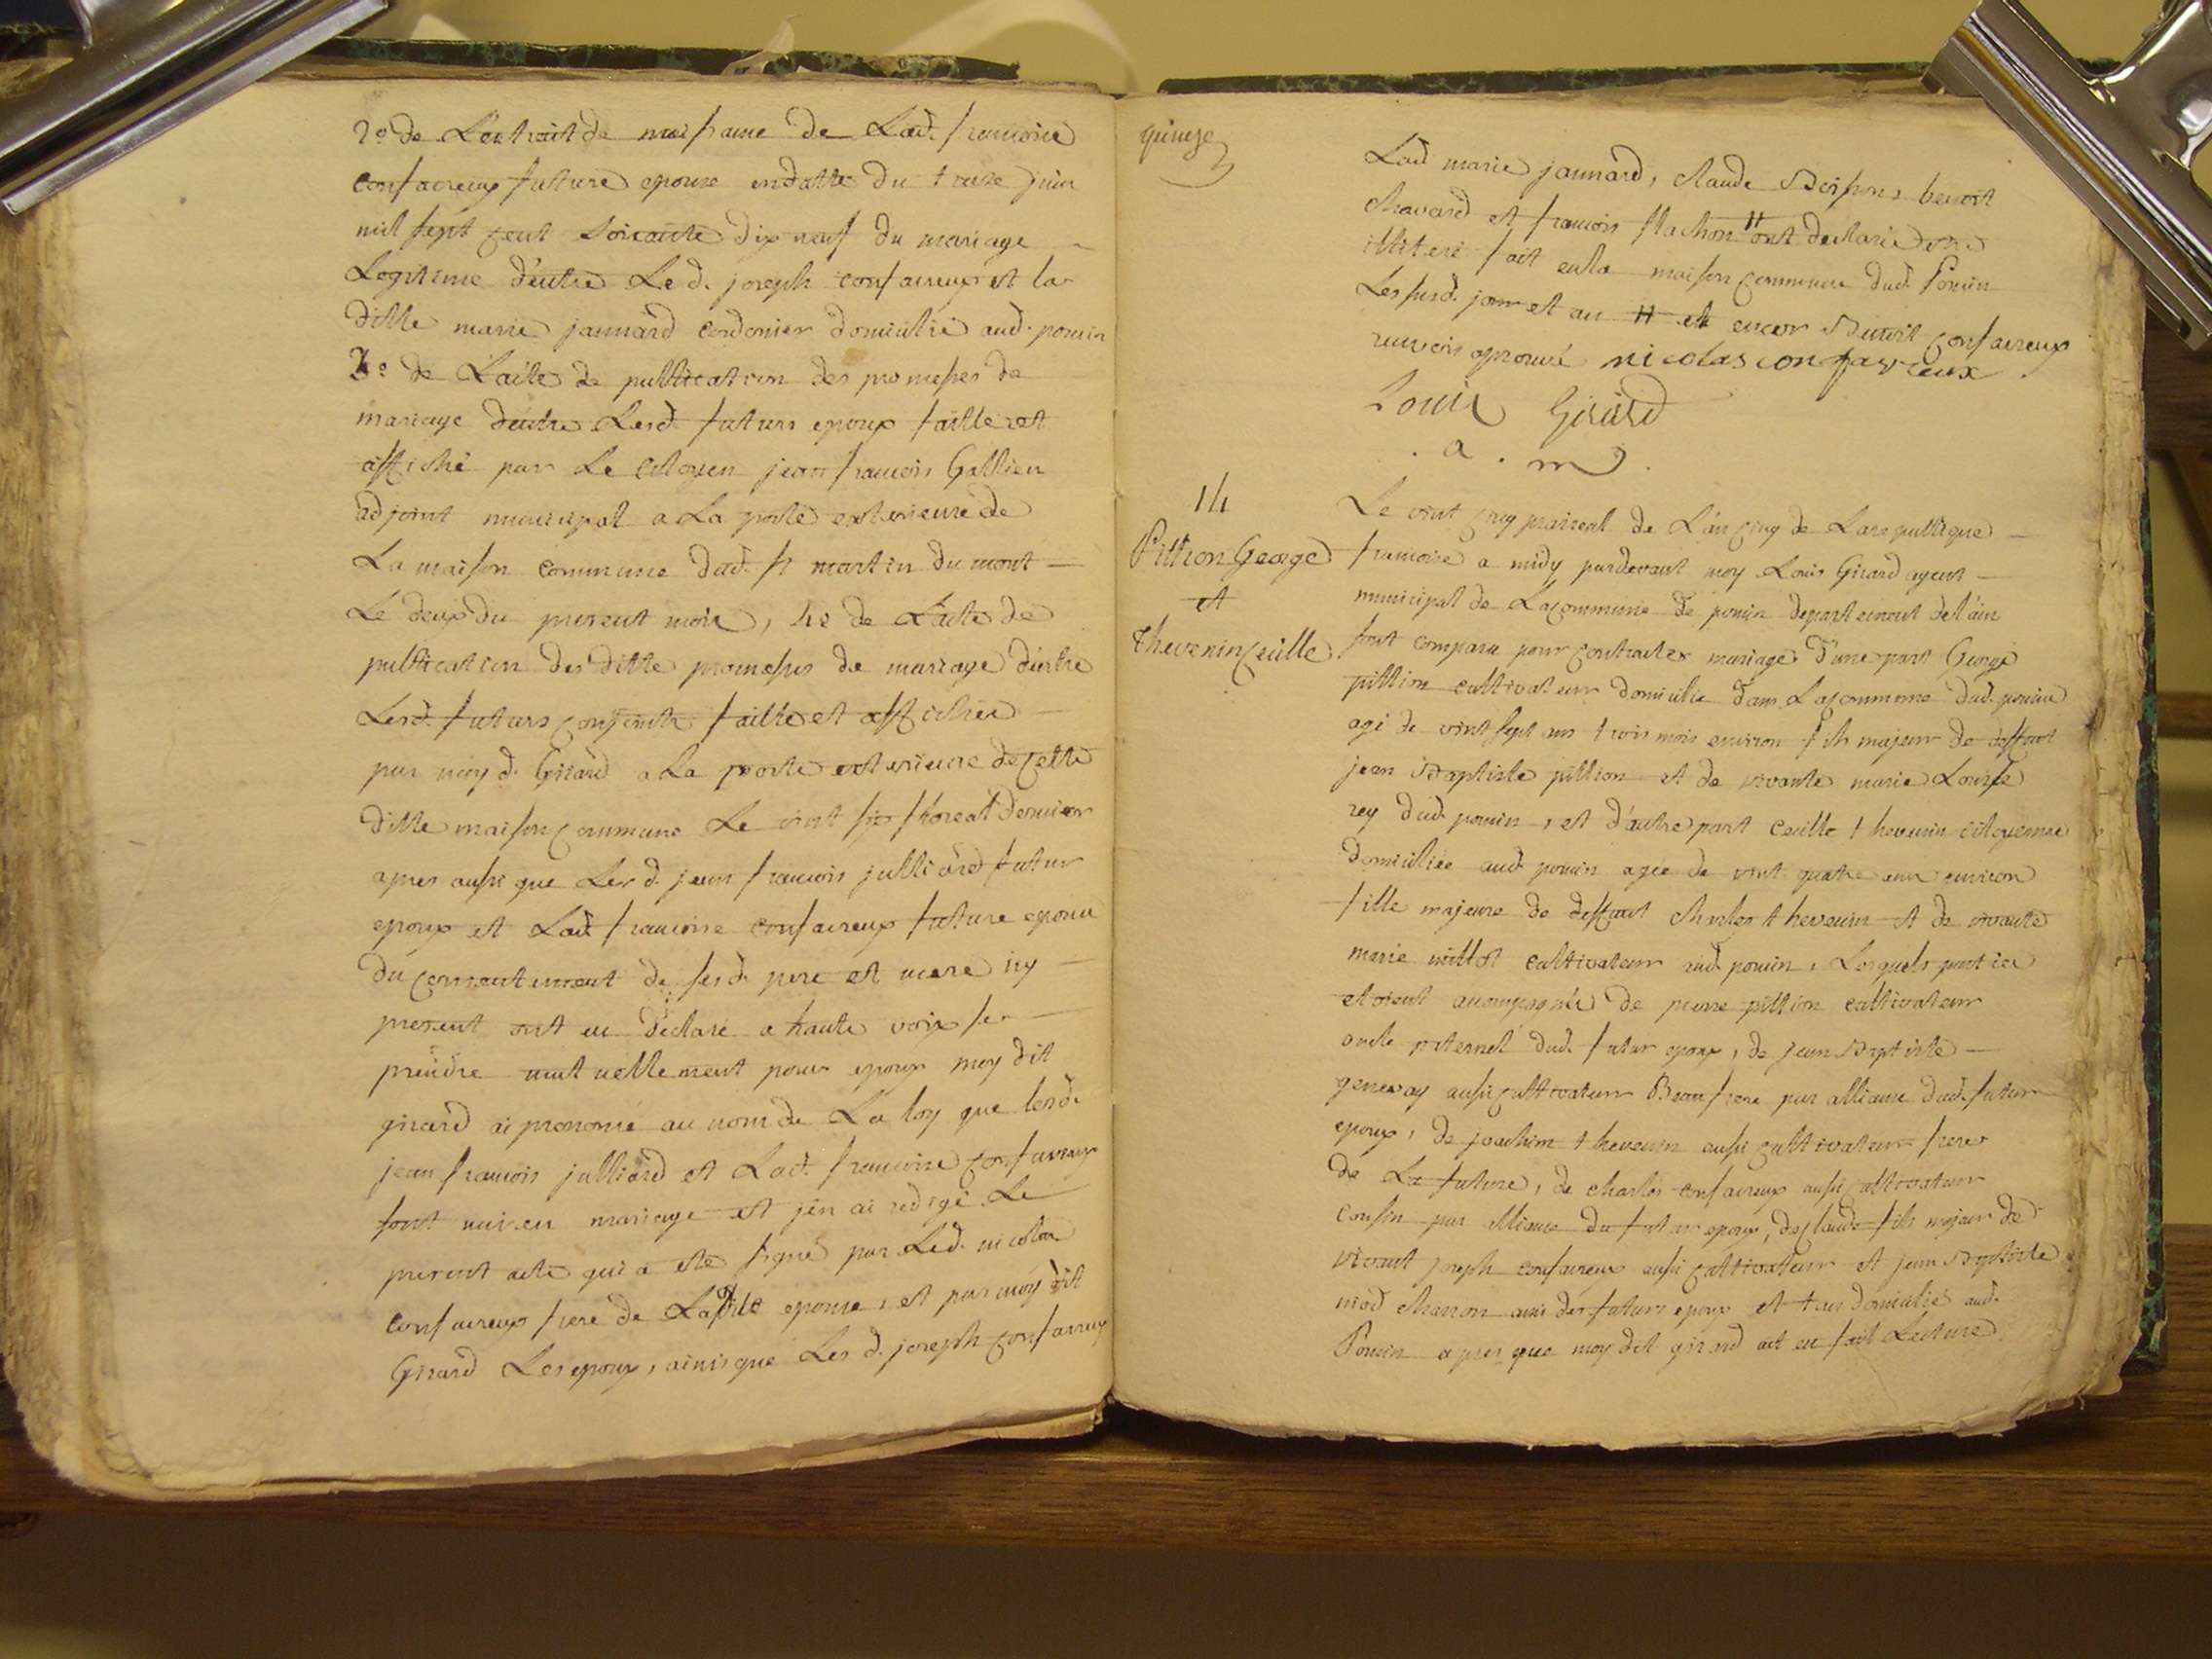 2º de L'extrait de naissance de Lad. francoise
confavreux future epouse endatte du treize juin
mil sept cent soixante dix neuf du mariage
Legitime d'entre Led. joseph confavreux et la
ditte marie jannard cordonier domicilié aud. poncin
3º de L'acte de publication des promesses de
mariage d'entre Lesd. futurs epoux faitte et
affiché par Le citoyen jean francois Gallien
adjoint municipal a La porte exterieure de
La maison commune dud. st martin du mont
Le deux du present mois, 4º de L'acte de
publication des ditte promesses de mariage d'entre
Lesd. futurs conjoints faitte et affichée
par moy d. Girard a La porte exterieure de cette
ditte maison commune Le vint six floreal dernier
apres aussi que Lesd. jean francois julliard futur
epoux et Lad. francoise confavreux future epouse
du consentement de sesd. pere et mere icy
present ont eu déclaré a haute voix se
prendre mutuellement pour epoux moy dit
girard ai prononcé au nom de La loy que lesd.
jean francois julliard et Lad. francoise confavreux
sont unis en mariage et j'en ai redigé Le
present acte qui a eté signé par Led. nicolas
confavreux frere de Laditte epouse, et par moy dit
Girard Les epoux, ainsi que Les d. joseph confavreux
quinze
Lad marie jannard, claude Boisson, benoit
chavard et francois flachon # ont declaré etre
illiteré fait en la maison commune dud. Poncin
Les susd. jour et an # et encor Benoit confavreux
renvois aprouvé nicolas confavreux
Louis Girard
a. m.
14
Pittion George
et
Thevenin Cecille
Le vint cinq prairial de L'an cinq de La republique
francoise a midy pardevant moy Louis Girard agent
municipal de La commune de poncin departement de l'ain
sont comparu pour contracter mariage d'une part George
pittion cultivateur domicilié dans La commune dud. poncin
agé de vint sept ans trois mois environ fils majeur de deffunt
jean Baptiste pittion et de vivante marie Louise
rey dud. poncin, et d'autre part cecille thevenin citoyenne
domiciliée aud. poncin agée de vint quatre ans environ
fille majeure de deffunt charles thevenin et de vivante
marie millot cultivateur aud. poncin, Lesquels partie
etoient accompagnés de pierre pittion cultivateur
oncle paternel dud. futur epoux, de jean Baptiste
genevay aussi cultivateur Beau frere par alliance dud. futur
epoux, de joachim thevenin aussi cultivateur frere
de La future, de charles confavreux aussi cultivateur
cousin par alliance du futur epoux, de claude fils majeur de
vivant joseph confavreux aussi cultivateur et jean Baptiste
niod charon ami des futurs epoux et tous domicilié aud.
Poncin apres que moy dit girard ait eu fait Lecture